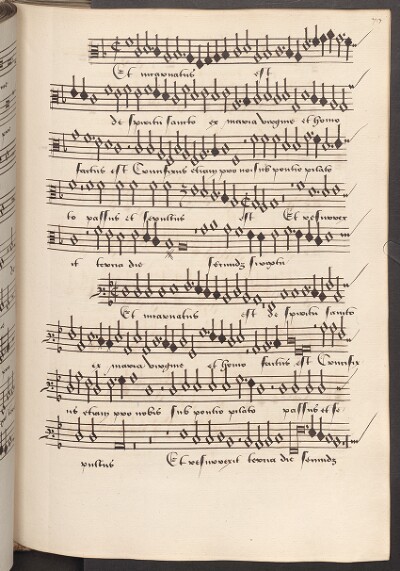 Et incarnatus est
de spiritu sancto ex maria virgine et homo
factus est Crucifixus etiam pro nobis sub pontio pilato
to passus et sepultus est Et resurrex
it tercia die secundz scriptu
Et incarnatus est de spiritu sancto
ex maria virgine et homo factus est Crucifix
us etiam pro nobis sub pontio pilato passus et se
pultus Et resurrexit tercia die secundz